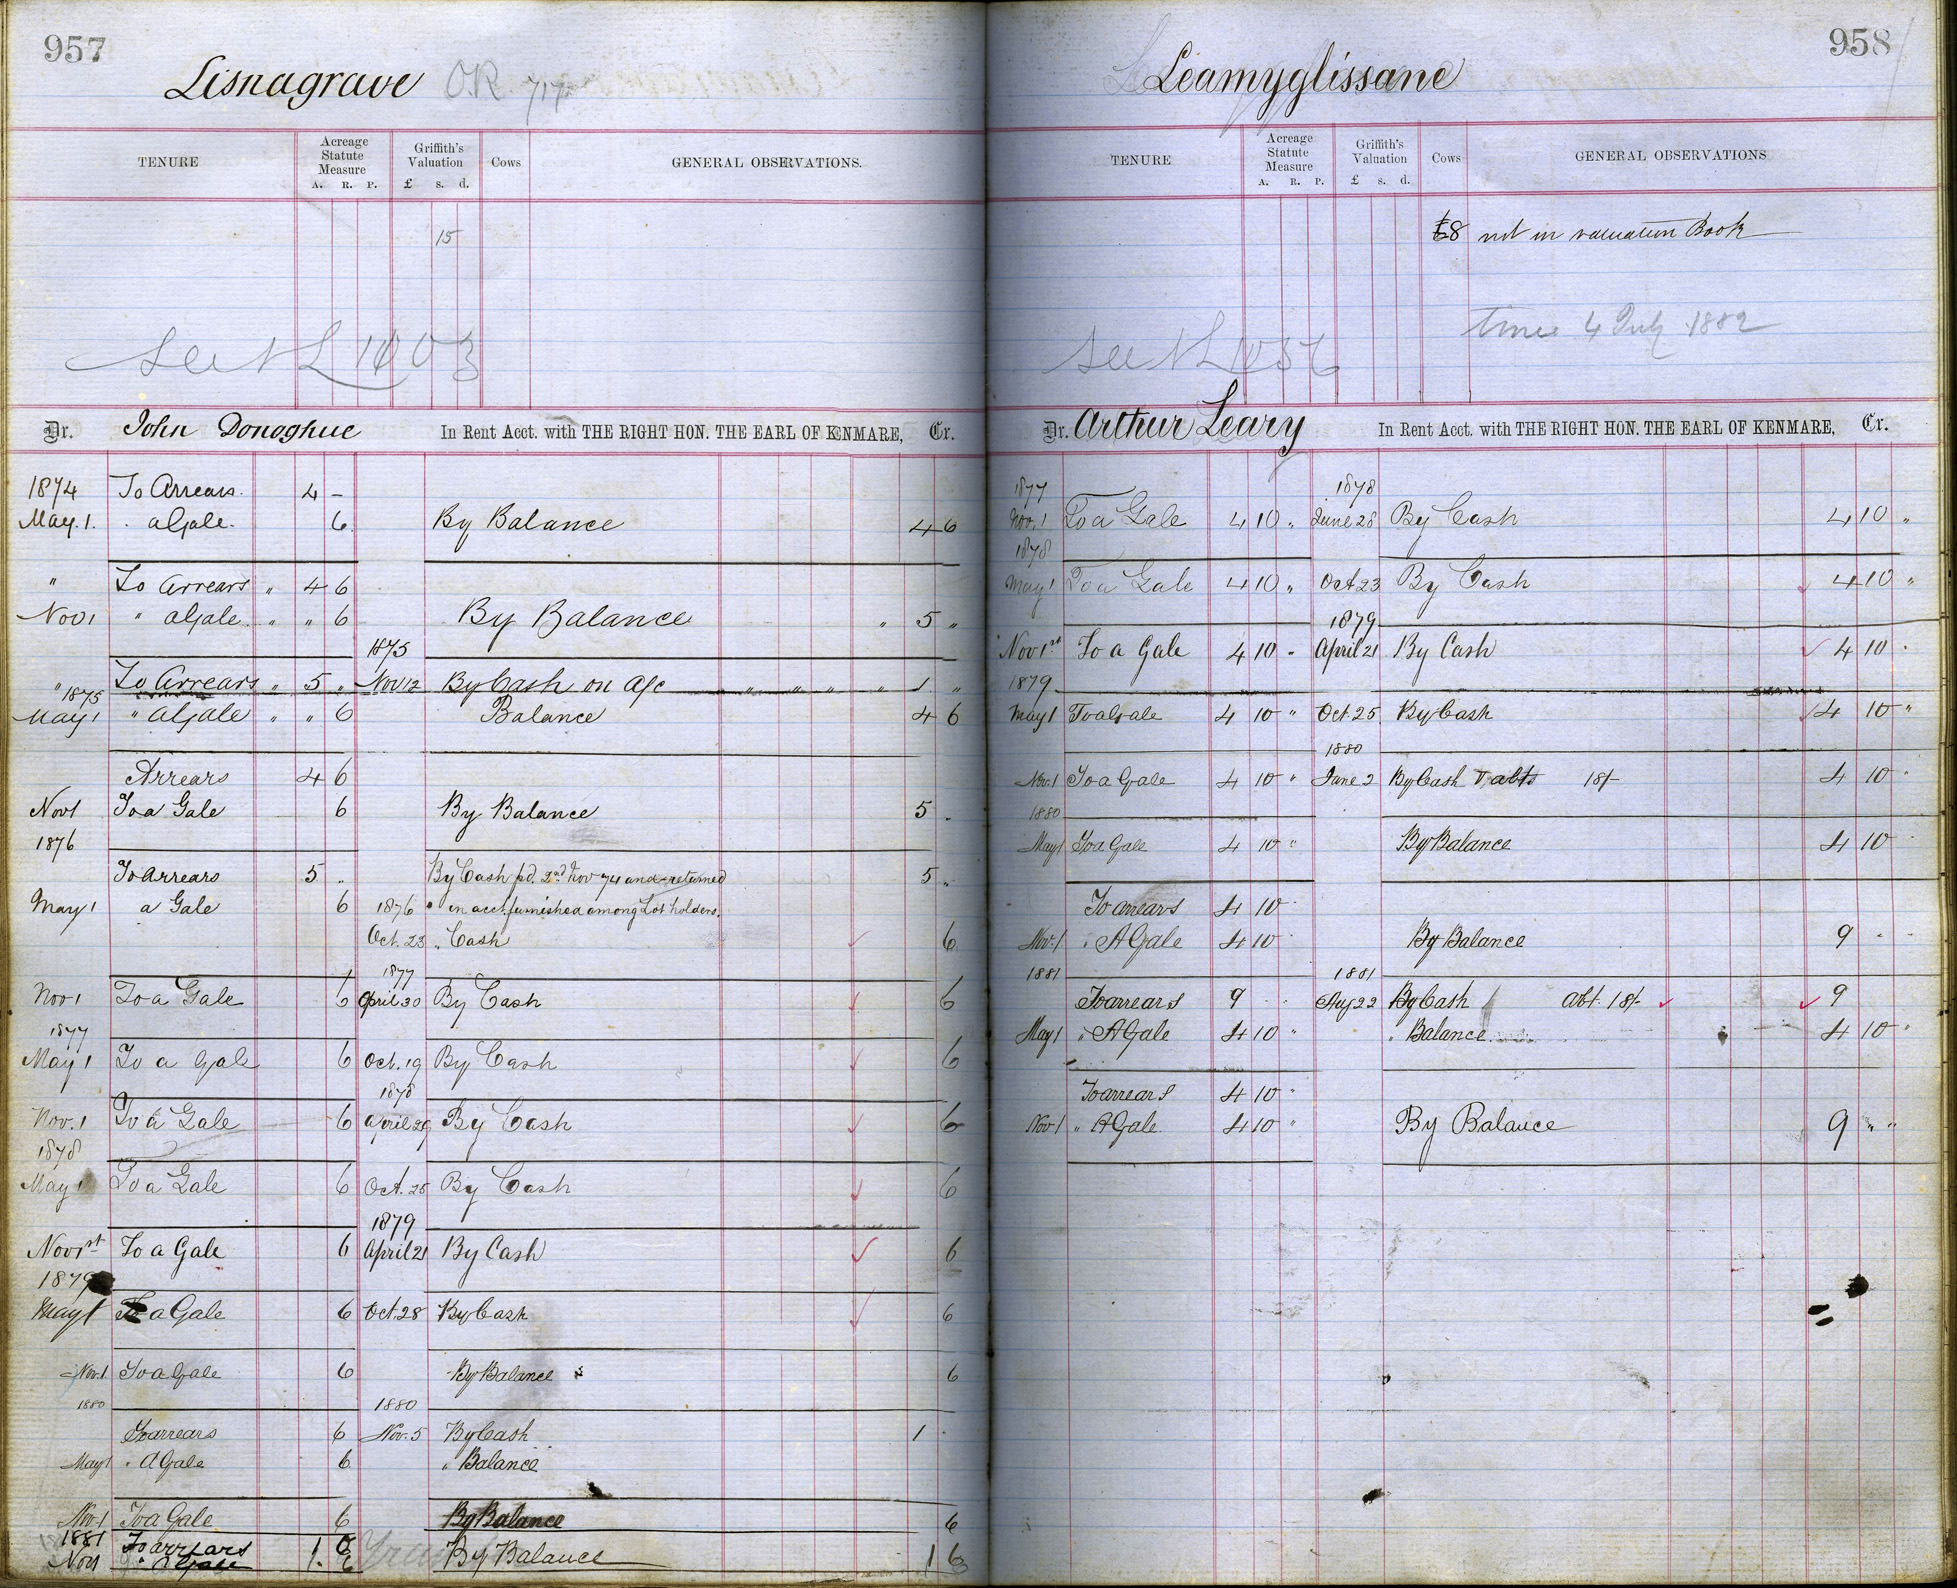 957
Lisnagrave OR 717
TENURE
Acreage Statute Measure
A. R. P.
Griffith's Valuation
£ s. d.
Cows
GENERAL OBSERVATIONS.
15
see NL 1403
Dr. John Donoghue In Rent Acct. with THE RIGHT HON. THE EARL OF KENMARE, Cr.
1874 To Arrears. 4 –
May. 1. . a Gale. 6. By Balance 4 6
" To Arrears " 4 6
Nov 1 " a Gale. " " 6 By Balance " 5 "
1875
" To Arrears " 5 " Nov 12 By Cash on A/c " " " " 1 "
1875
May 1 " a Gale " " 6 Balance 4 6
Arrears 4 6
Nov 1 To a Gale 6 By Balance 5 .
1876
To Arrears 5 .. By Cash pd. 2nd Nov 74 and returned 5 ..
May 1 a Gale 6 1876 " in acct. furnished among Lot holders.
Oct. 23 " Cash 6.
1877
Nov 1 To a Gale 6 April 30 By Cash 6
1877
May 1 To a Gale 6 Oct. 19 By Cash 6
1878
Nov. 1 To a Gale 6 April 29 By Cash 6
1878
May 1 To a Gale 6 Oct. 25 By Cash 6
1879
Nov 1st To a Gale 6 April 21 By Cash 6
1879
May 1 To a Gale 6 Oct. 28 By Cash 6
Nov. 1 To a Gale 6 By Balance 6
1880 1880
To arrears 6 Nov. 5 By Cash 1
May 1 " A Gale 6 " Balance
Nov 1 To a Gale 6 By Balance 6
1881 To arrears 1. 6
Nov 1 " a Gale 6 By Balance 1 6
958
Leamyglissane
TENURE
Acreage Statute Measure
A. R. P.
Griffith's Valuation
£ s. d.
Cows
GENERAL OBSERVATIONS
£8 not in valuation Book
4 July 1882
see NL 1056
Dr. Arthur Leary In Rent Acct. with THE RIGHT HON. THE EARL OF KENMARE, Cr.
1877 1878
Nov. 1 To a Gale 4 10 " June 28 By Cash 4 10 "
1878
May 1 To a Gale 4 10 " Oct 23 By Cash 4 10 "
1879
Nov 1st To a Gale 4 10 " April 21 By Cash 4 10 .
1879
May 1 To a Gale 4 10 " Oct. 25 By Cash 4 10 "
1880
Nov. 1 To a Gale 4 10 " June 2 By Cash 18/- 4 10 "
1880
May 1 To a Gale 4 10 " By Balance 4 10
To arrears 4 10
Nov. 1 " A Gale 4 10 By Balance 9 .
1881 1881
To arrears 9 . . Aug 22 By Cash abt. 18/- 9
May 1 " A Gale 4 10 " " Balance 4 10 "
To arrears 4 10 "
Nov 1 " A Gale 4 10 " By Balance 9 " "